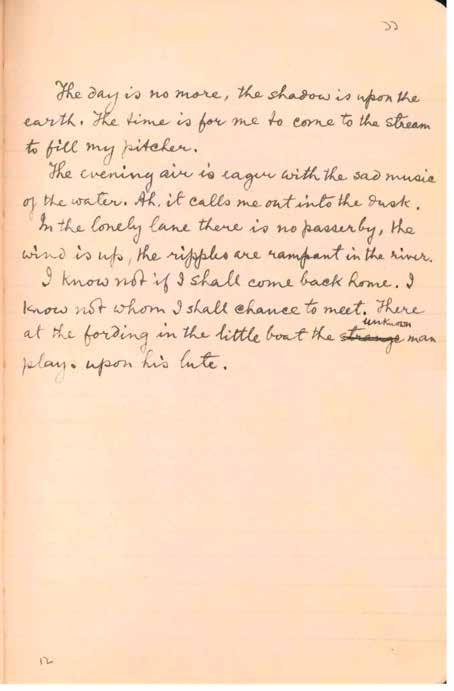 The day is no more, the shadow is upon the
earth. The time is for me to come to the stream
to fill my pitcher.
The evening air is eager with the sad music
of the water. Ah, it calls me out into the dusk.
In the lonely lane there is no passerby, the
wind is up, the ripples are rampant in the river.
I know not if I shall come back home. I
know not whom I shall chance to meet. There
at the fording in the little boat the strange unknown man
plays upon his lute.
12